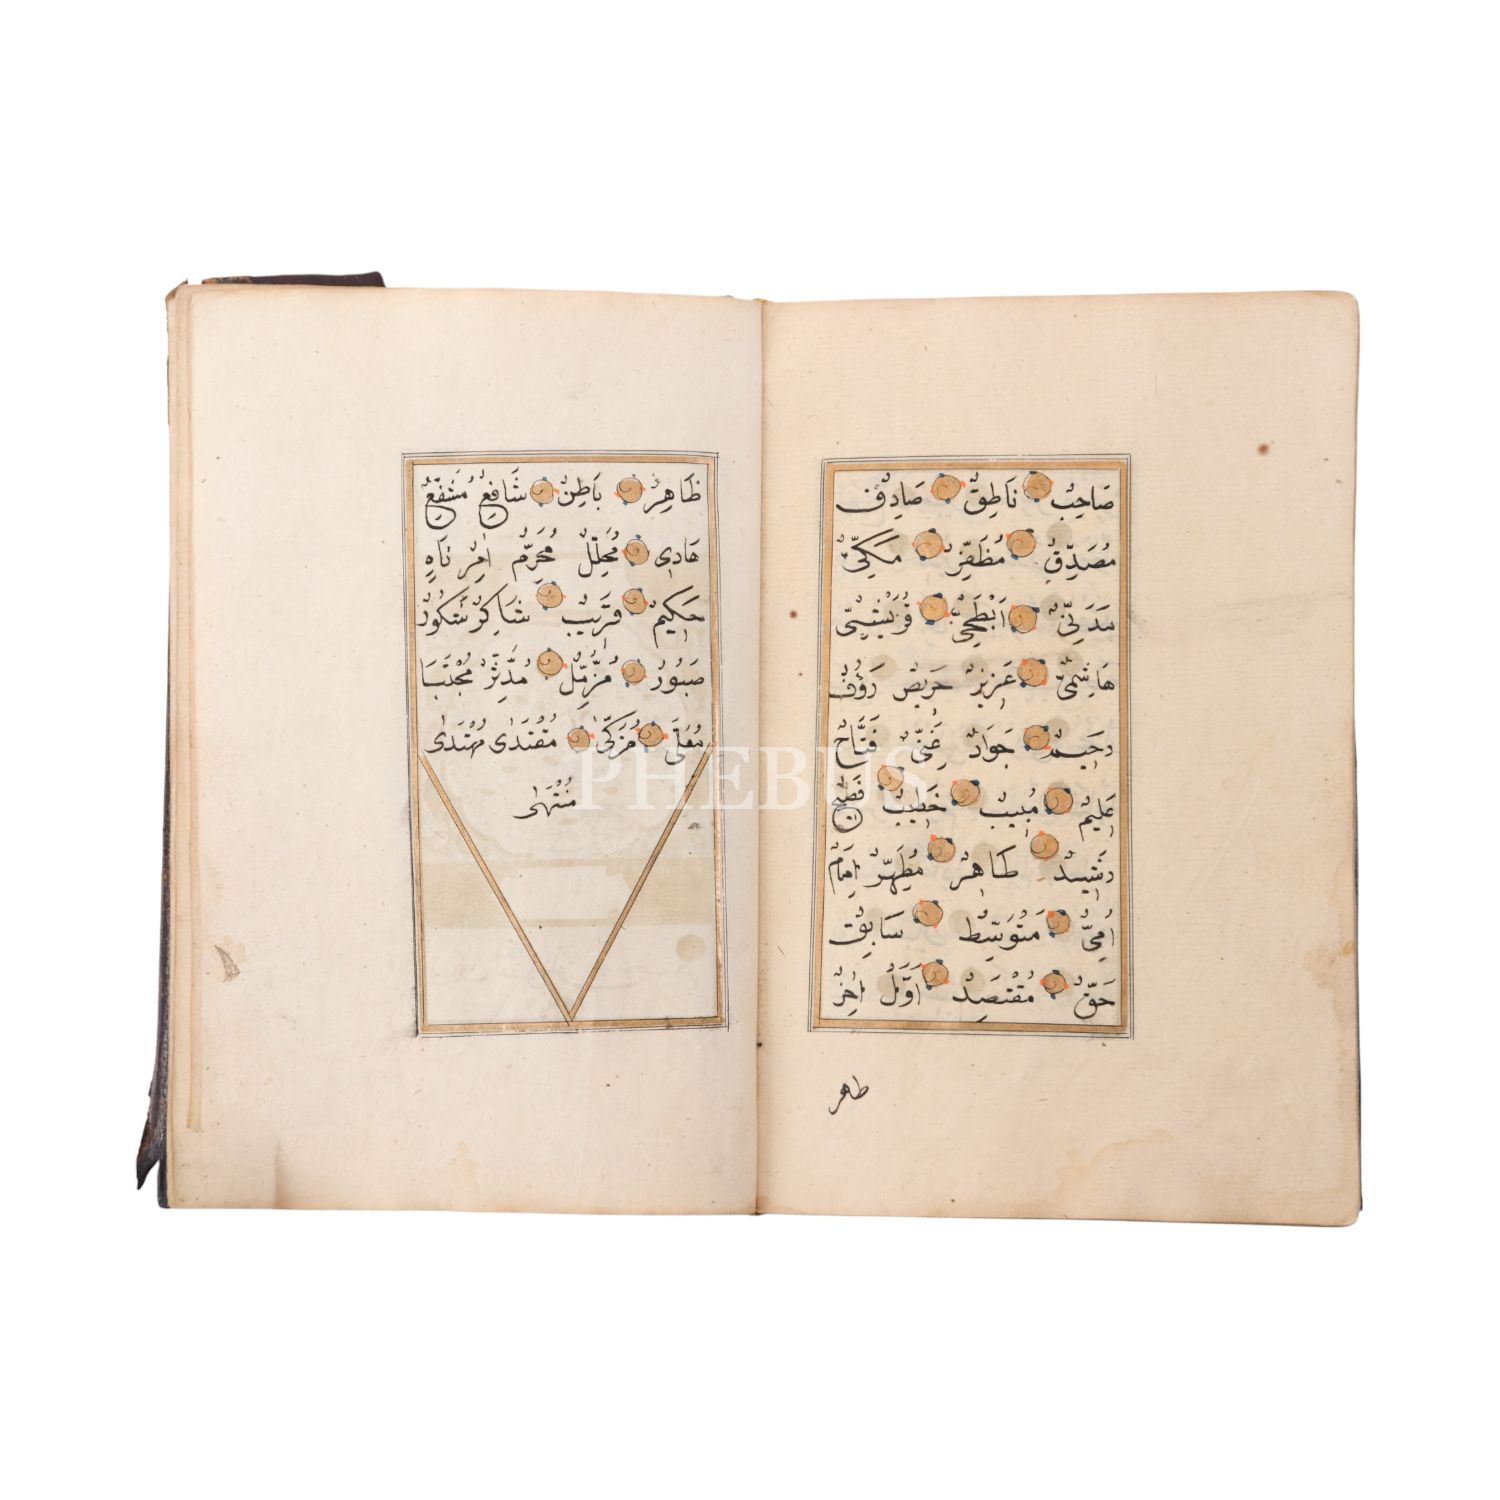 صَاحِبٌ نَاطِقٌ صَادِقٌ
مُصَدِّقٌ مُظَفَّرٌ مَكِّيٌّ
مَدَنِيٌّ اَبْطَحِيٌّ قُرَيْشِيٌّ
هَاشِمِيٌّ عَزِيزٌ حَرِيصٌ رَؤُفٌ
رَحِيمٌ جَوَادٌ غَنِيٌّ فَتَّاحٌ
عَلِيمٌ مُنِيبٌ خَطِيبٌ فَصِيحٌ
رَشِيدٌ طَاهِرٌ مُطَهَّرٌ اِمَامٌ
اُمِّيٌّ مُتَوَسِّطٌ سَابِقٌ
حَقٌّ مُقْتَصِدٌ اَوَّلٌ اٰخِرٌ
ظاهر
ظَاهِرٌ بَاطِنٌ شَافِعٌ مُشَفَّعٌ
هَادِى مُحَلِّلٌ مُحَرِّمٌ اٰمِرٌ نَاهٍ
حَكِيمٌ قَرِيبٌ شَاكِرٌ شَكُورٌ
صَبُورٌ مُزَّمِّلٌ مُدَّثِّرٌ مُجْتَبَا
مُعَلَّى مُزَكَّى مُقْتَدٰى مُهْتَدٰى
مُنْتَهٰى
PHEBUS